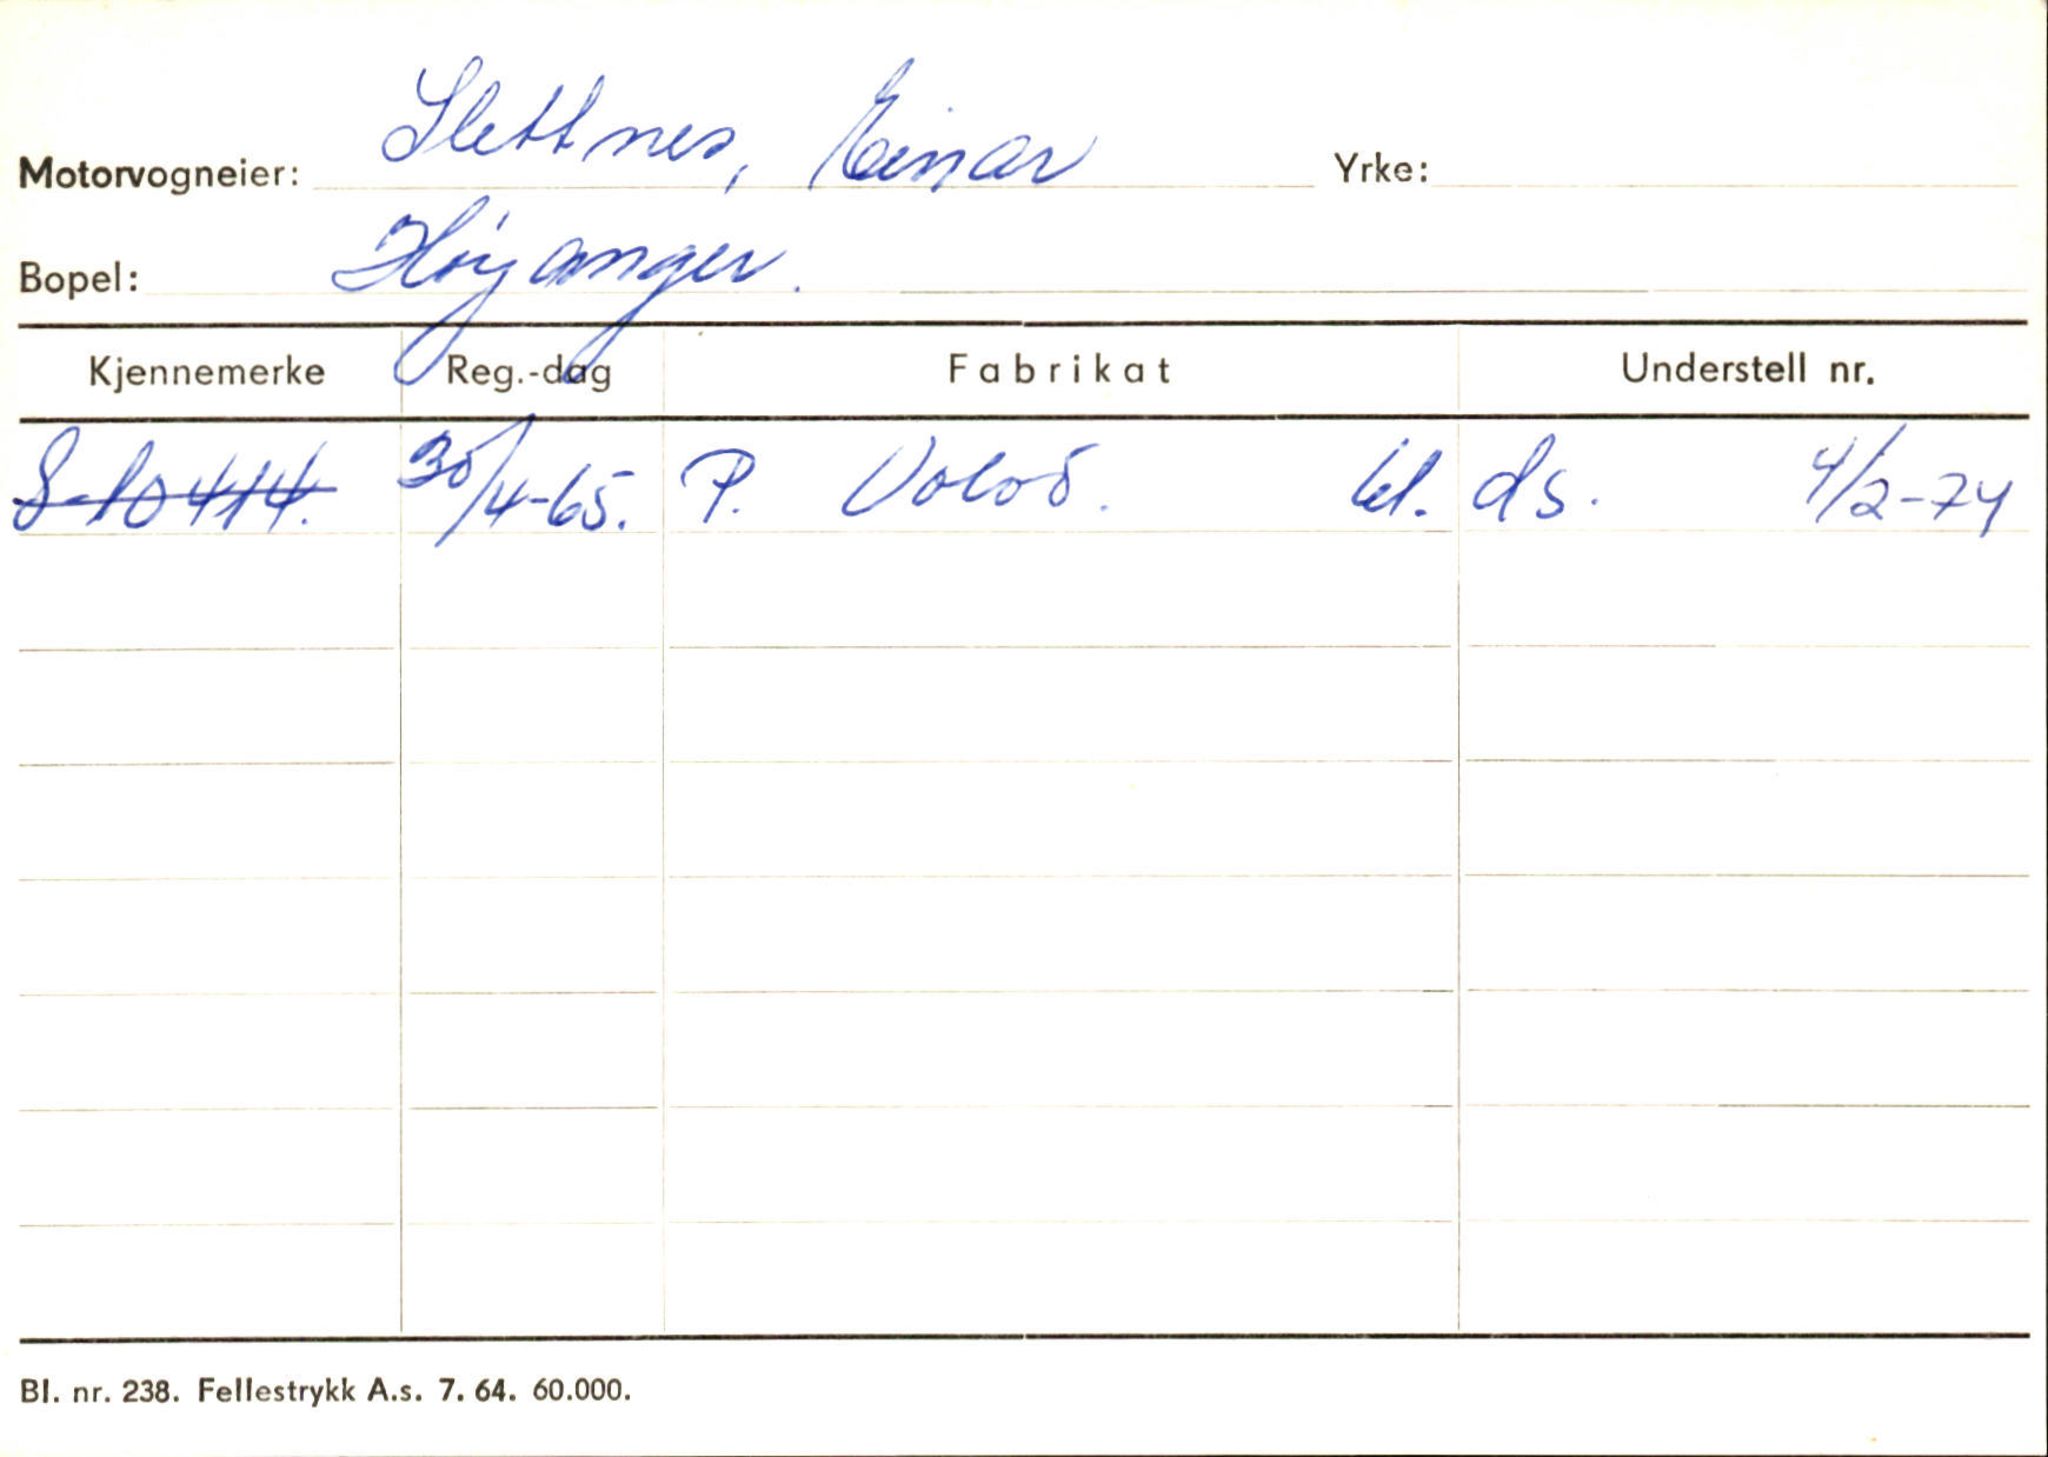 Motorvogneier: Slettnes, Einar Yrke:
Bopel: Høyanger.
Kjennemerke Reg.-dag Fabrikat Understell nr.
S-10414. 30/4-65. P. Volvo. til. ds. 4/2-74
Bl. nr. 238. Fellestrykk A.s. 7. 64. 60.000.